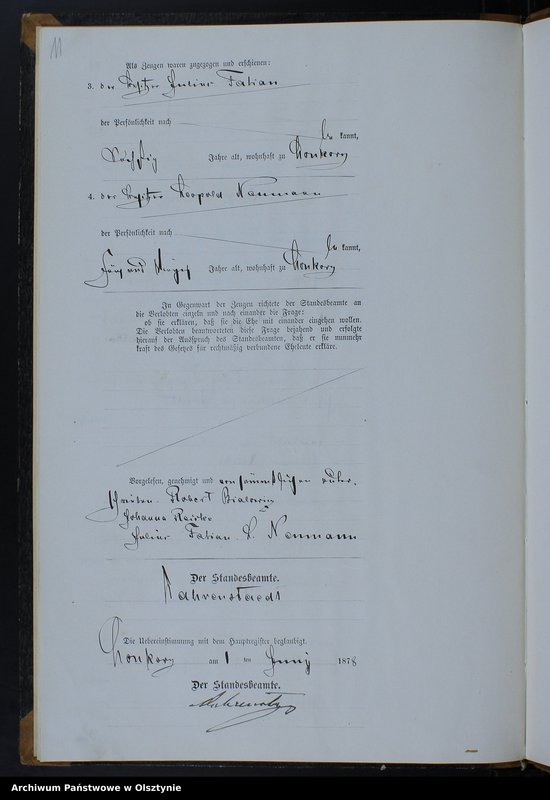 11
Als Zeugen waren zugezogen und erschienen:
3. der Besitzer Julius Fabian
der Persönlichkeit nach
be kannt,
Sechzig Jahre alt, wohnhaft zu
4. der Besitzer Leopold Neumann
der Persönlichkeit nach
be kannt,
Fünf und Jahre alt, wohnhaft zu
In Gegenwart der Zeugen richtete der Standesbeamte an
die Verlobten einzeln und nach einander die Frage:
ob sie erklären, daß sie die Ehe mit einander eingehen wollen.
Die Verlobten beantworteten diese Frage bejahend und erfolgte
hierauf der Ausspruch des Standesbeamten, daß er sie nunmehr
kraft des Gesetzes für rechtmäßig verbundene Eheleute erkläre.
Vorgelesen, genehmigt und von sämmtlichen unter-
schrieben. Robert
Johanna
Julius Fabian. L. Neumann
Der Standesbeamte.
Nahrenstaedt
Die Uebereinstimmung mit dem Hauptregister beglaubigt.
am 1 ten Juny 1878
Der Standesbeamte.
Archiwum Państwowe w Olsztynie